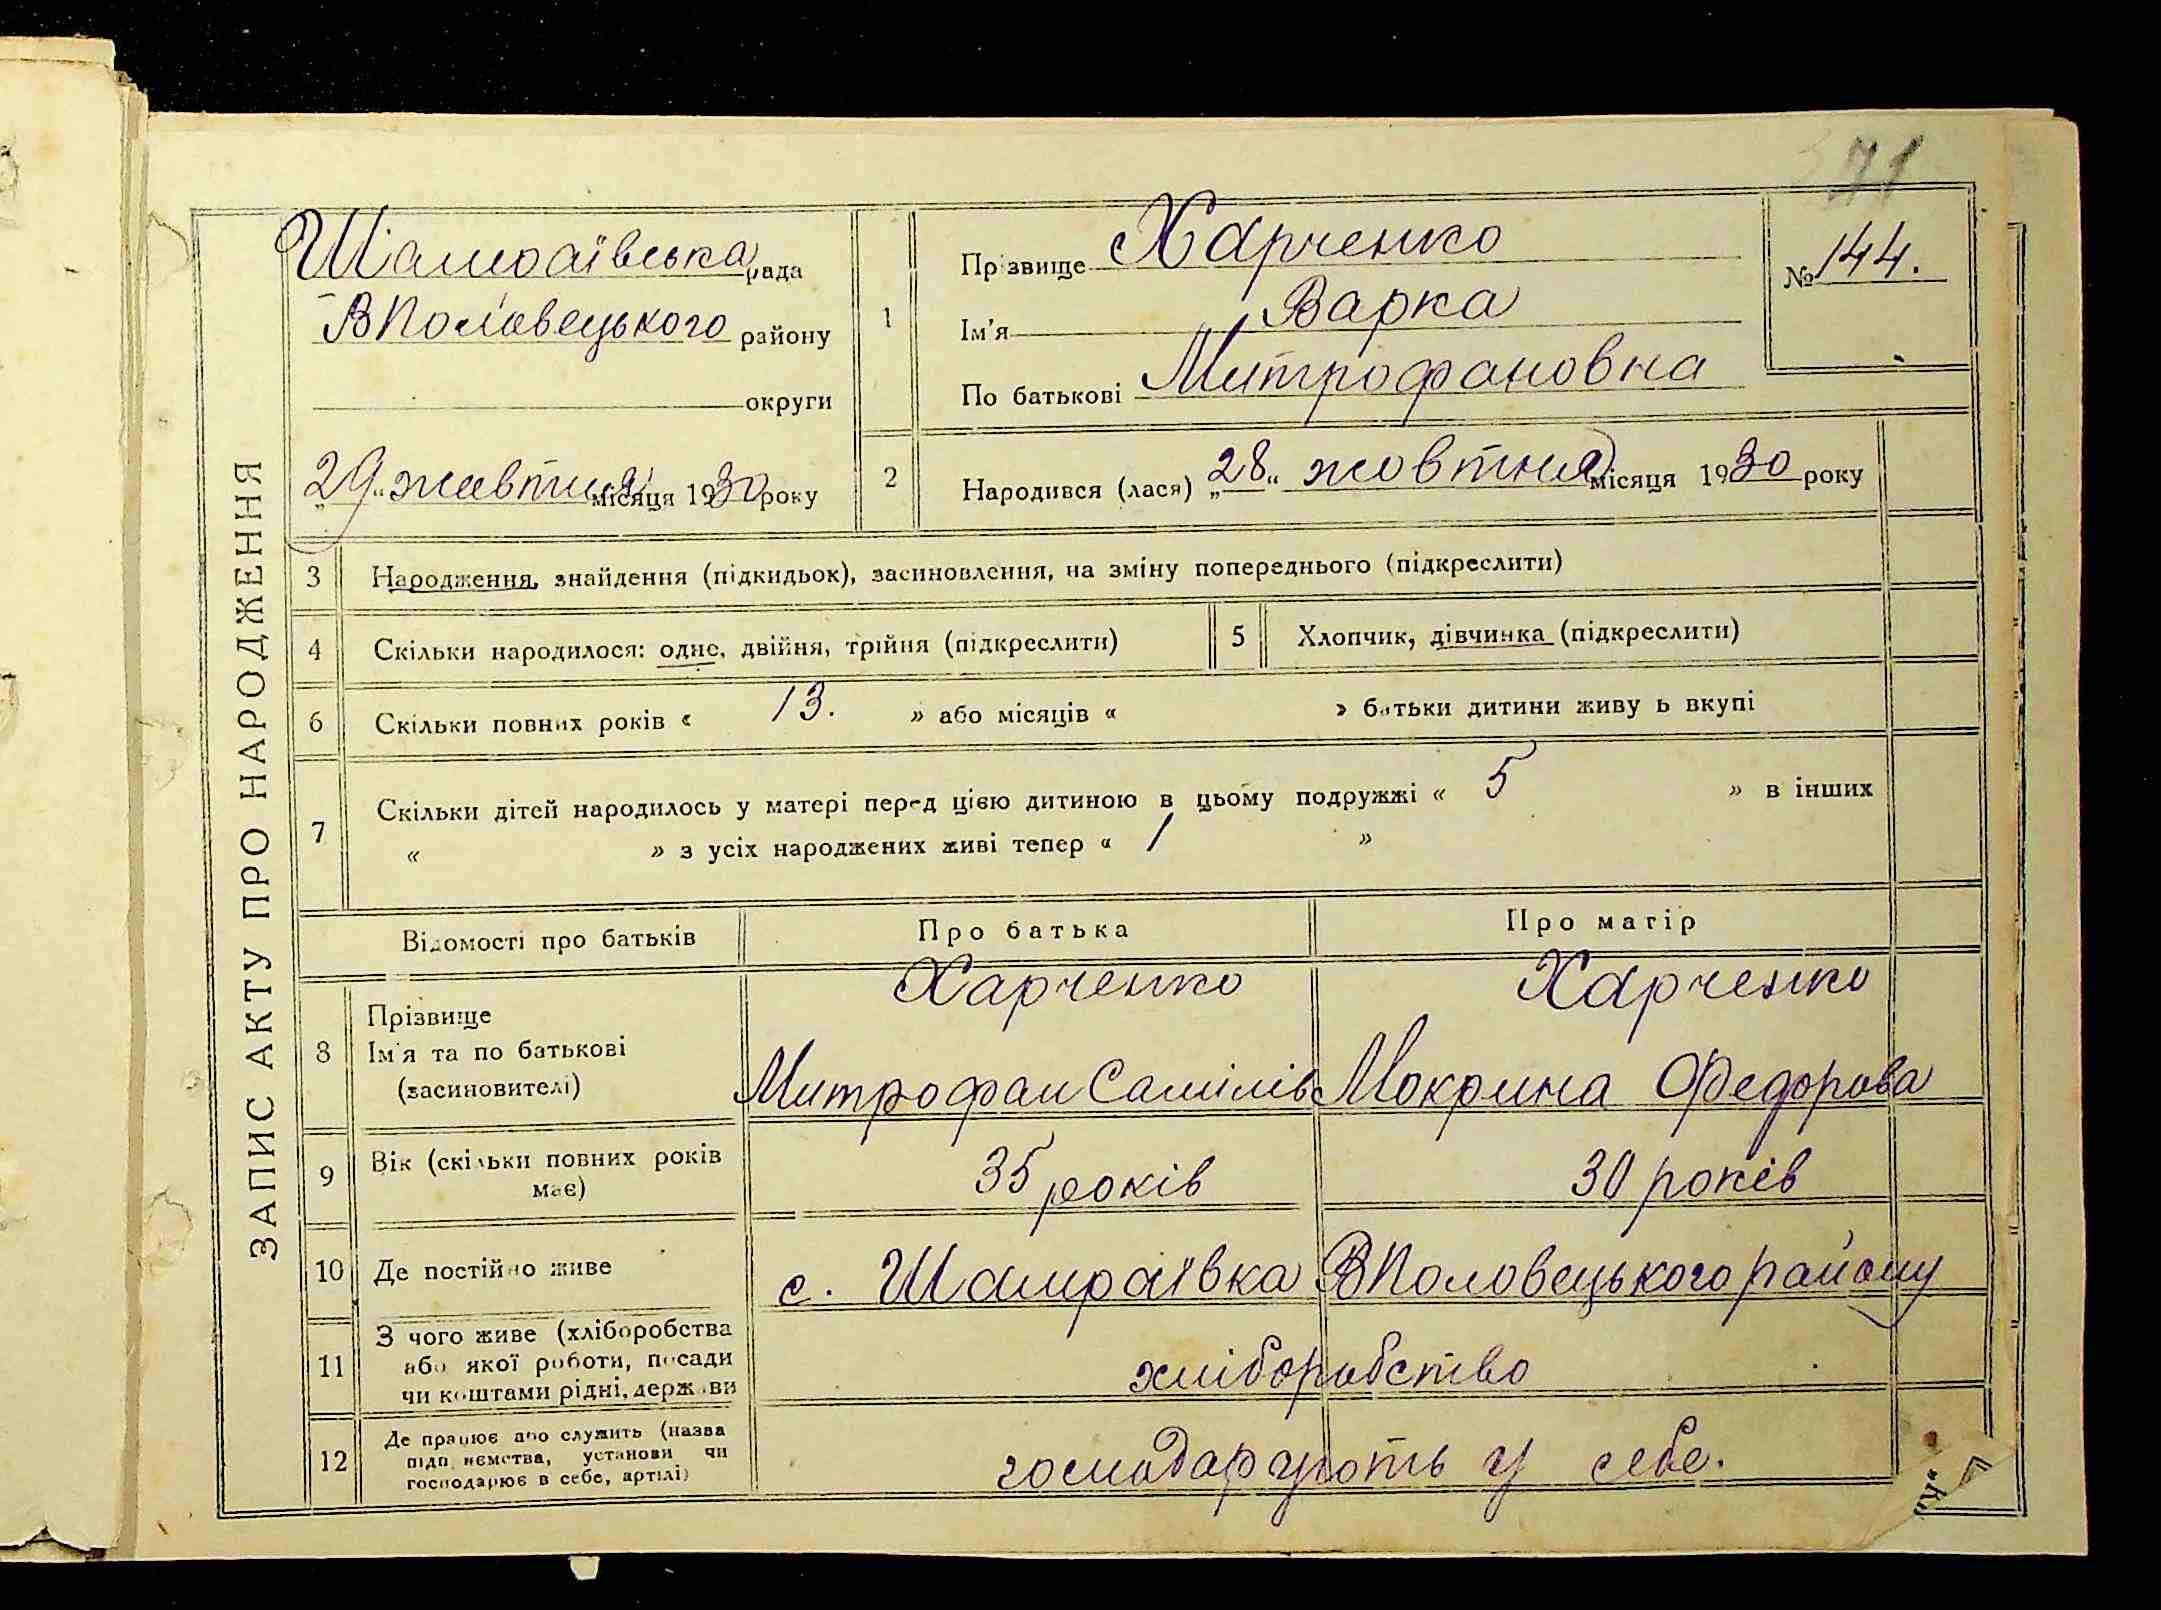 71
ЗАПИС АКТУ ПРО НАРОДЖЕННЯ
Шамраївська рада
ВПоловецького району
округи
„29“ жовтня місяця 1930 року
1
Прізвище Харченко
Ім'я Варка
По батькові Митрофановна
№ 144.
2
Народився (лася) „28“ жовтня місяця 1930 року
3 Народження, знайдення (підкидьок), засиновлення, на зміну попереднього (підкреслити)
4 Скільки народилося: одне, двійня, трійня (підкреслити)
5 Хлопчик, дівчинка (підкреслити)
6 Скільки повних років « 13. » або місяців « » батьки дитини живуть вкупі
7 Скільки дітей народилось у матері перед цією дитиною в цьому подружжі « 5 » в інших
« » з усіх народжених живі тепер « 1 »
Відомості про батьків Про батька Про матір
8 Прізвище Харченко Харченко
Ім'я та по батькові
(засиновителі) Митрофан Самілів Мокрина Федорова
9 Вік (скільки повних років
має) 35 років 30 років
10 Де постійно живе с. Шамраївка ВПоловецького району
11 З чого живе (хліборобства
або якої роботи, посади
чи коштами рідні, держави хліборобство
12 Де працює або служить (назва
підприємства, установи чи
господарює в себе, артілі) господарують у себе.
„К